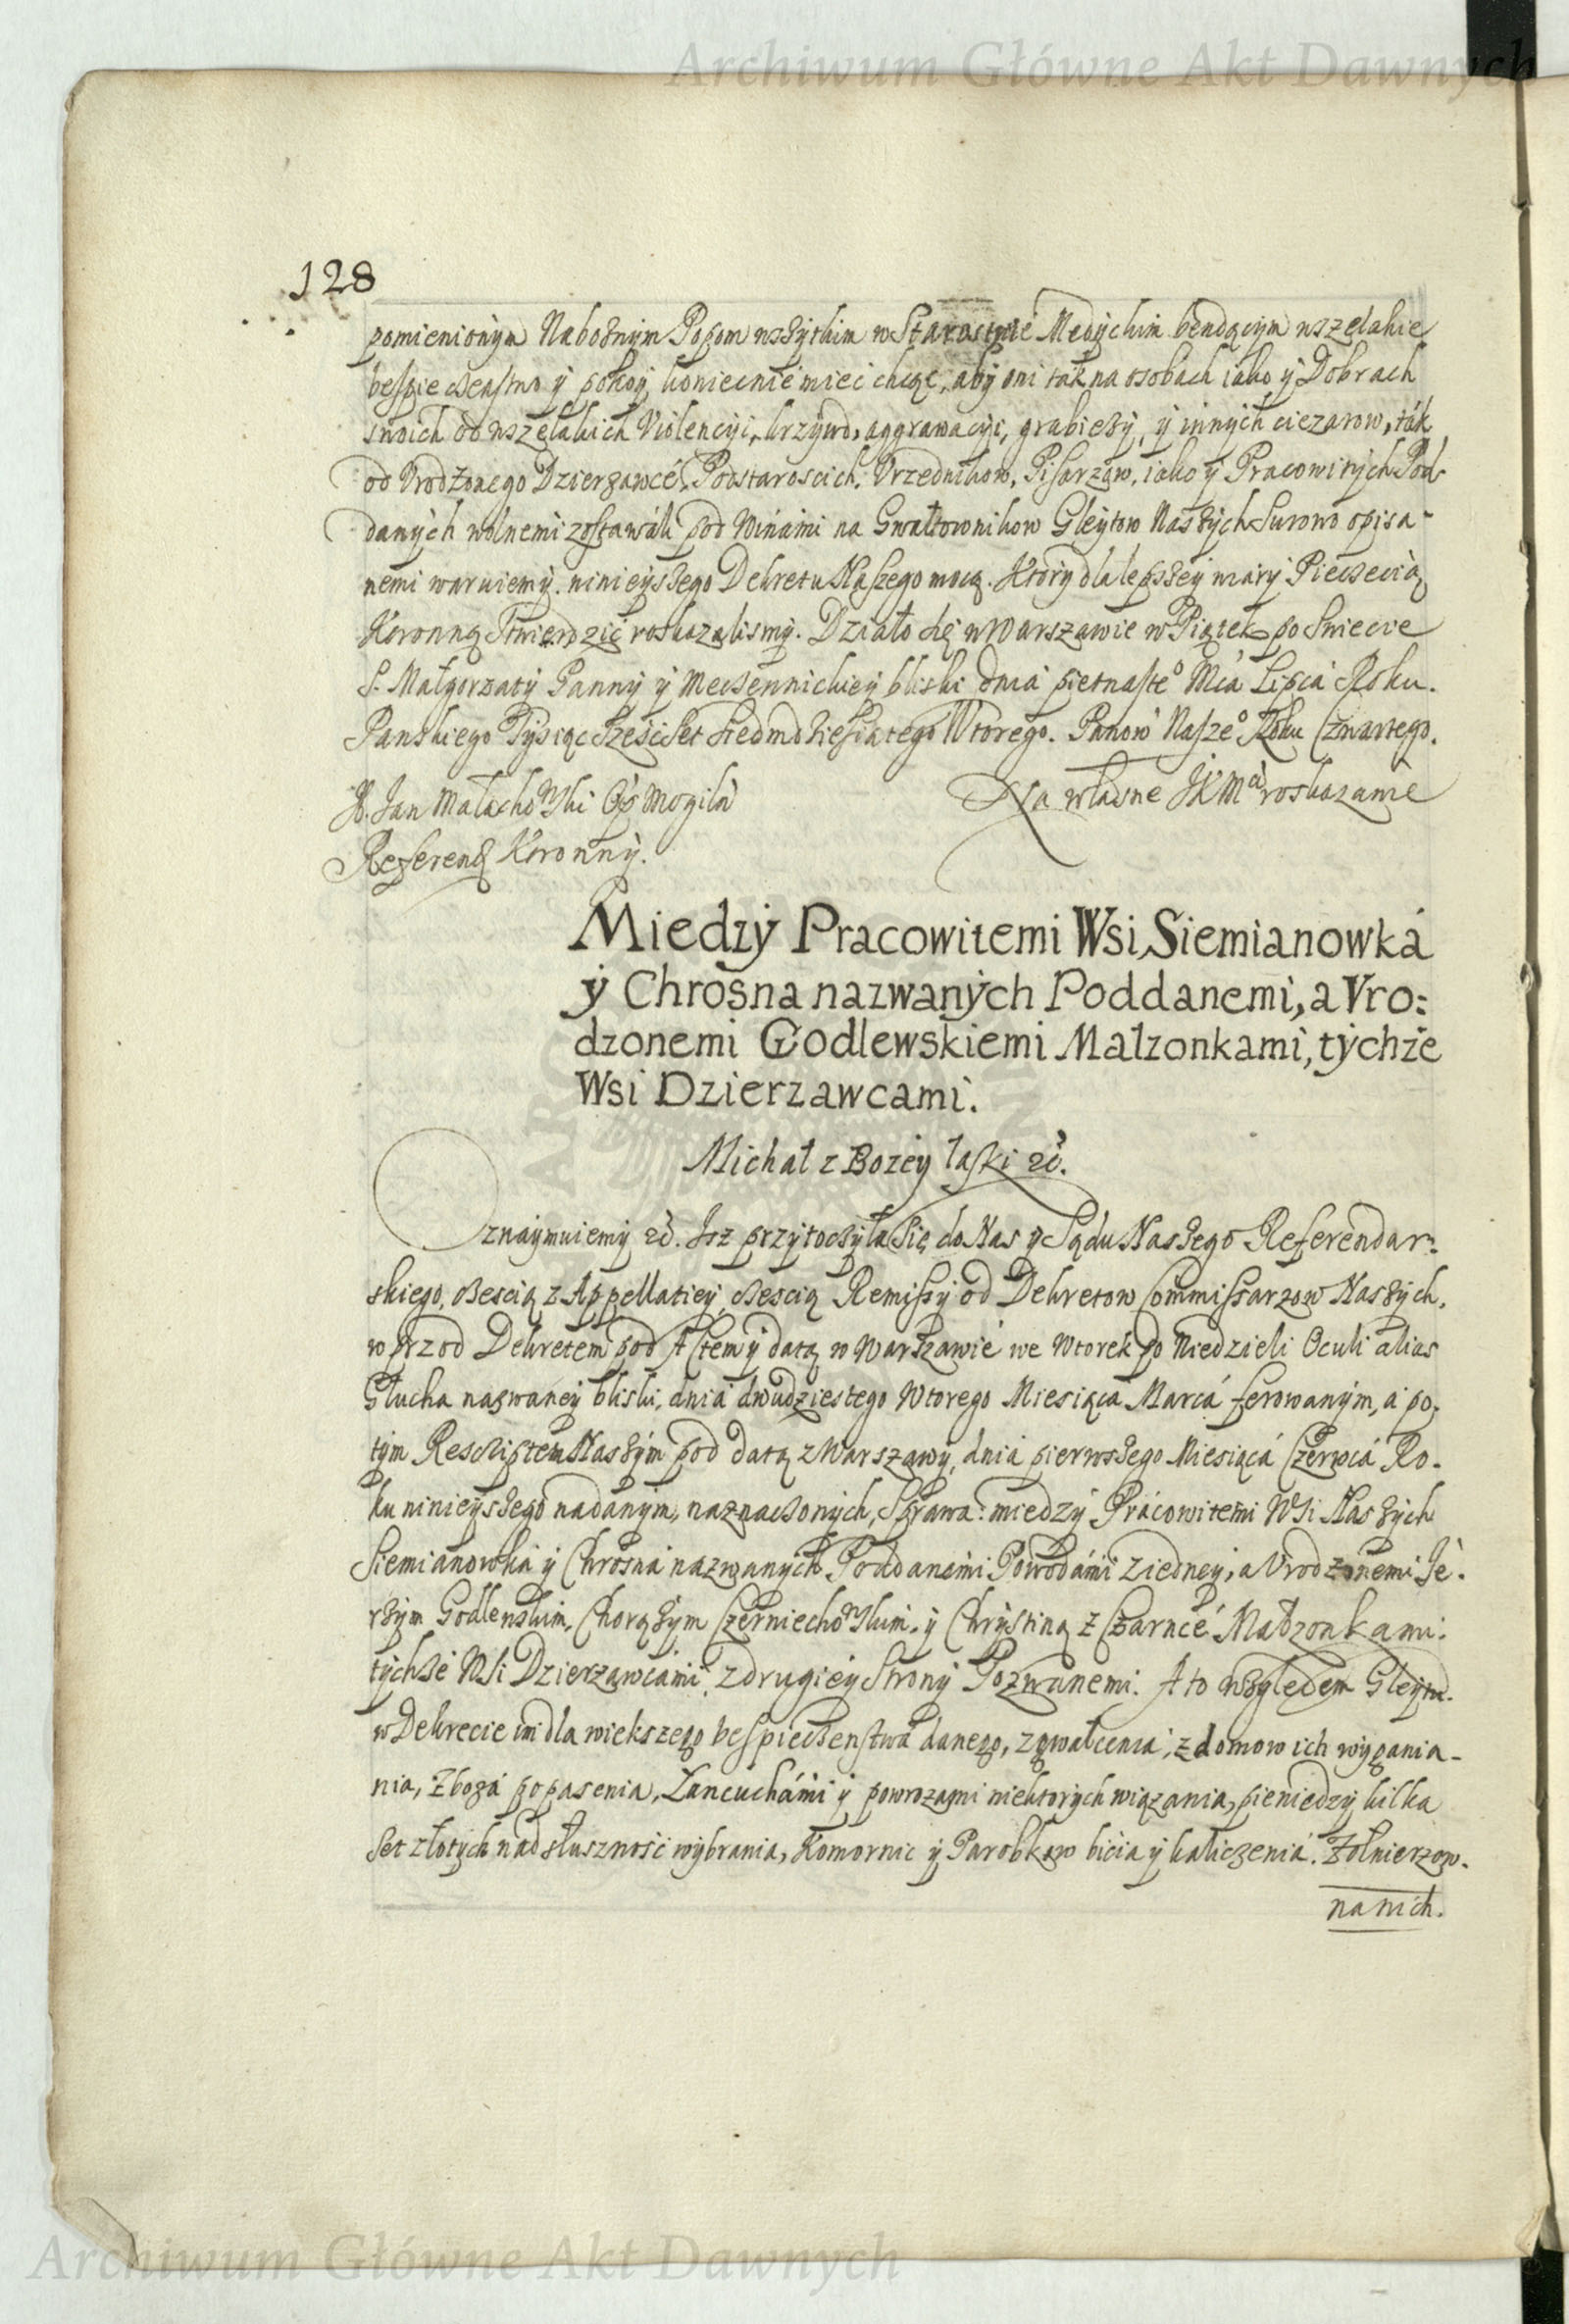 Archiwum Główne Akt Dawnych
128
pomienionym Nabożnym Popom wszytkim w Starostwie Medyckim bendącym wszelakie
bespieczeństwo y pokoy koniecznie mieć chcąc, aby oni tak na osobach iako y Dobrach
swoich od wszelakich Violencyi, krzywd, aggrawacyi, grabieży, y innych ciezarow, ták
od Vrodzonego Dzierżawcé, Podstaroscich, Vrzednikow, Pisarzow, iako y Pracowitych Pod
danych wolnemi zostawáli pod Winámi na Gwałtownikow Gleytow Naszych Surowo opisa-
nemi waruiemy. ninieyszego Dekretu Naszego mocą. Ktory dla lepszey wiary Pieczecią
Koronną Stwierdzić roskazalismy. Działo się w Warszawie w Piątek po Swiecie
S. Małgorzaty Panny y Meczennickiey bliski dnia pietnaste⁰ Mca Lipca Roku.
Panskiego Tysiąc Sześć Set Siedmdziesiątego Wtorego. Panow Nasze⁰ Roku Czwartego.
X. Jan Małachowski Op Mogilń
Na własne JKMci roskazanie
Referend Koronny.
Miedzy Pracowitemi Wsi Siemianowká
ÿ Chrosna nazwanÿch Poddanemi, a Vro:
dzonemi Godlewskiemi Malzonkami, tÿchże
Wsi Dzierzawcami.
Michał z Bozey łaski &c.
Oznaymuiemy &c. Jsz przytoczyła się do Nas y Sądu Naszego Referendar:
skiego, czescią z Appellatiey, czescią Remissy od Dekretow Commissarzow Naszych,
wprzod Dekretem pod Actem y datą w Warszawie we Wtorek po Niedzieli Oculi alias
Głucha nazwaney bliski, dnia dwudziestego Wtorego Miesiąca Marca ferowanym, a po.
tym Rescriptem Naszym pod datą z Warszawy, dnia pierwszego Miesiącá Czerwcá Ro-
ku ninieyszego nadanym, naznaczonych, Sprawa: miedzy Prácowitemi Wsi Naszych
Siemianowká y Chrosna nazwanych Poddanemi Powodámi z iedney, a Vrodzonemi Je.
rzym Godlewskim, Chorążym Czerniechowskim, y Chrystiną z Czarncé Małzonkami:
tychże Wsi Dzierzawcámi z drugiey Strony Pozwanemi. A to względem Gleytu.
w Dekrecie im dla wiekszego bespieczeństwa danego, zgwałcenia, z domow ich wygania-
nia, Zboża popasenia, Łancuchámi y powrozami niektorych wiązania, pieniedzy kilka
Set złotych nad słuszność wybrania, Komornic y Parobkow bicia y kaliczenia. Zołnierzow.
na nich.
Archiwum Główne Akt Dawnych